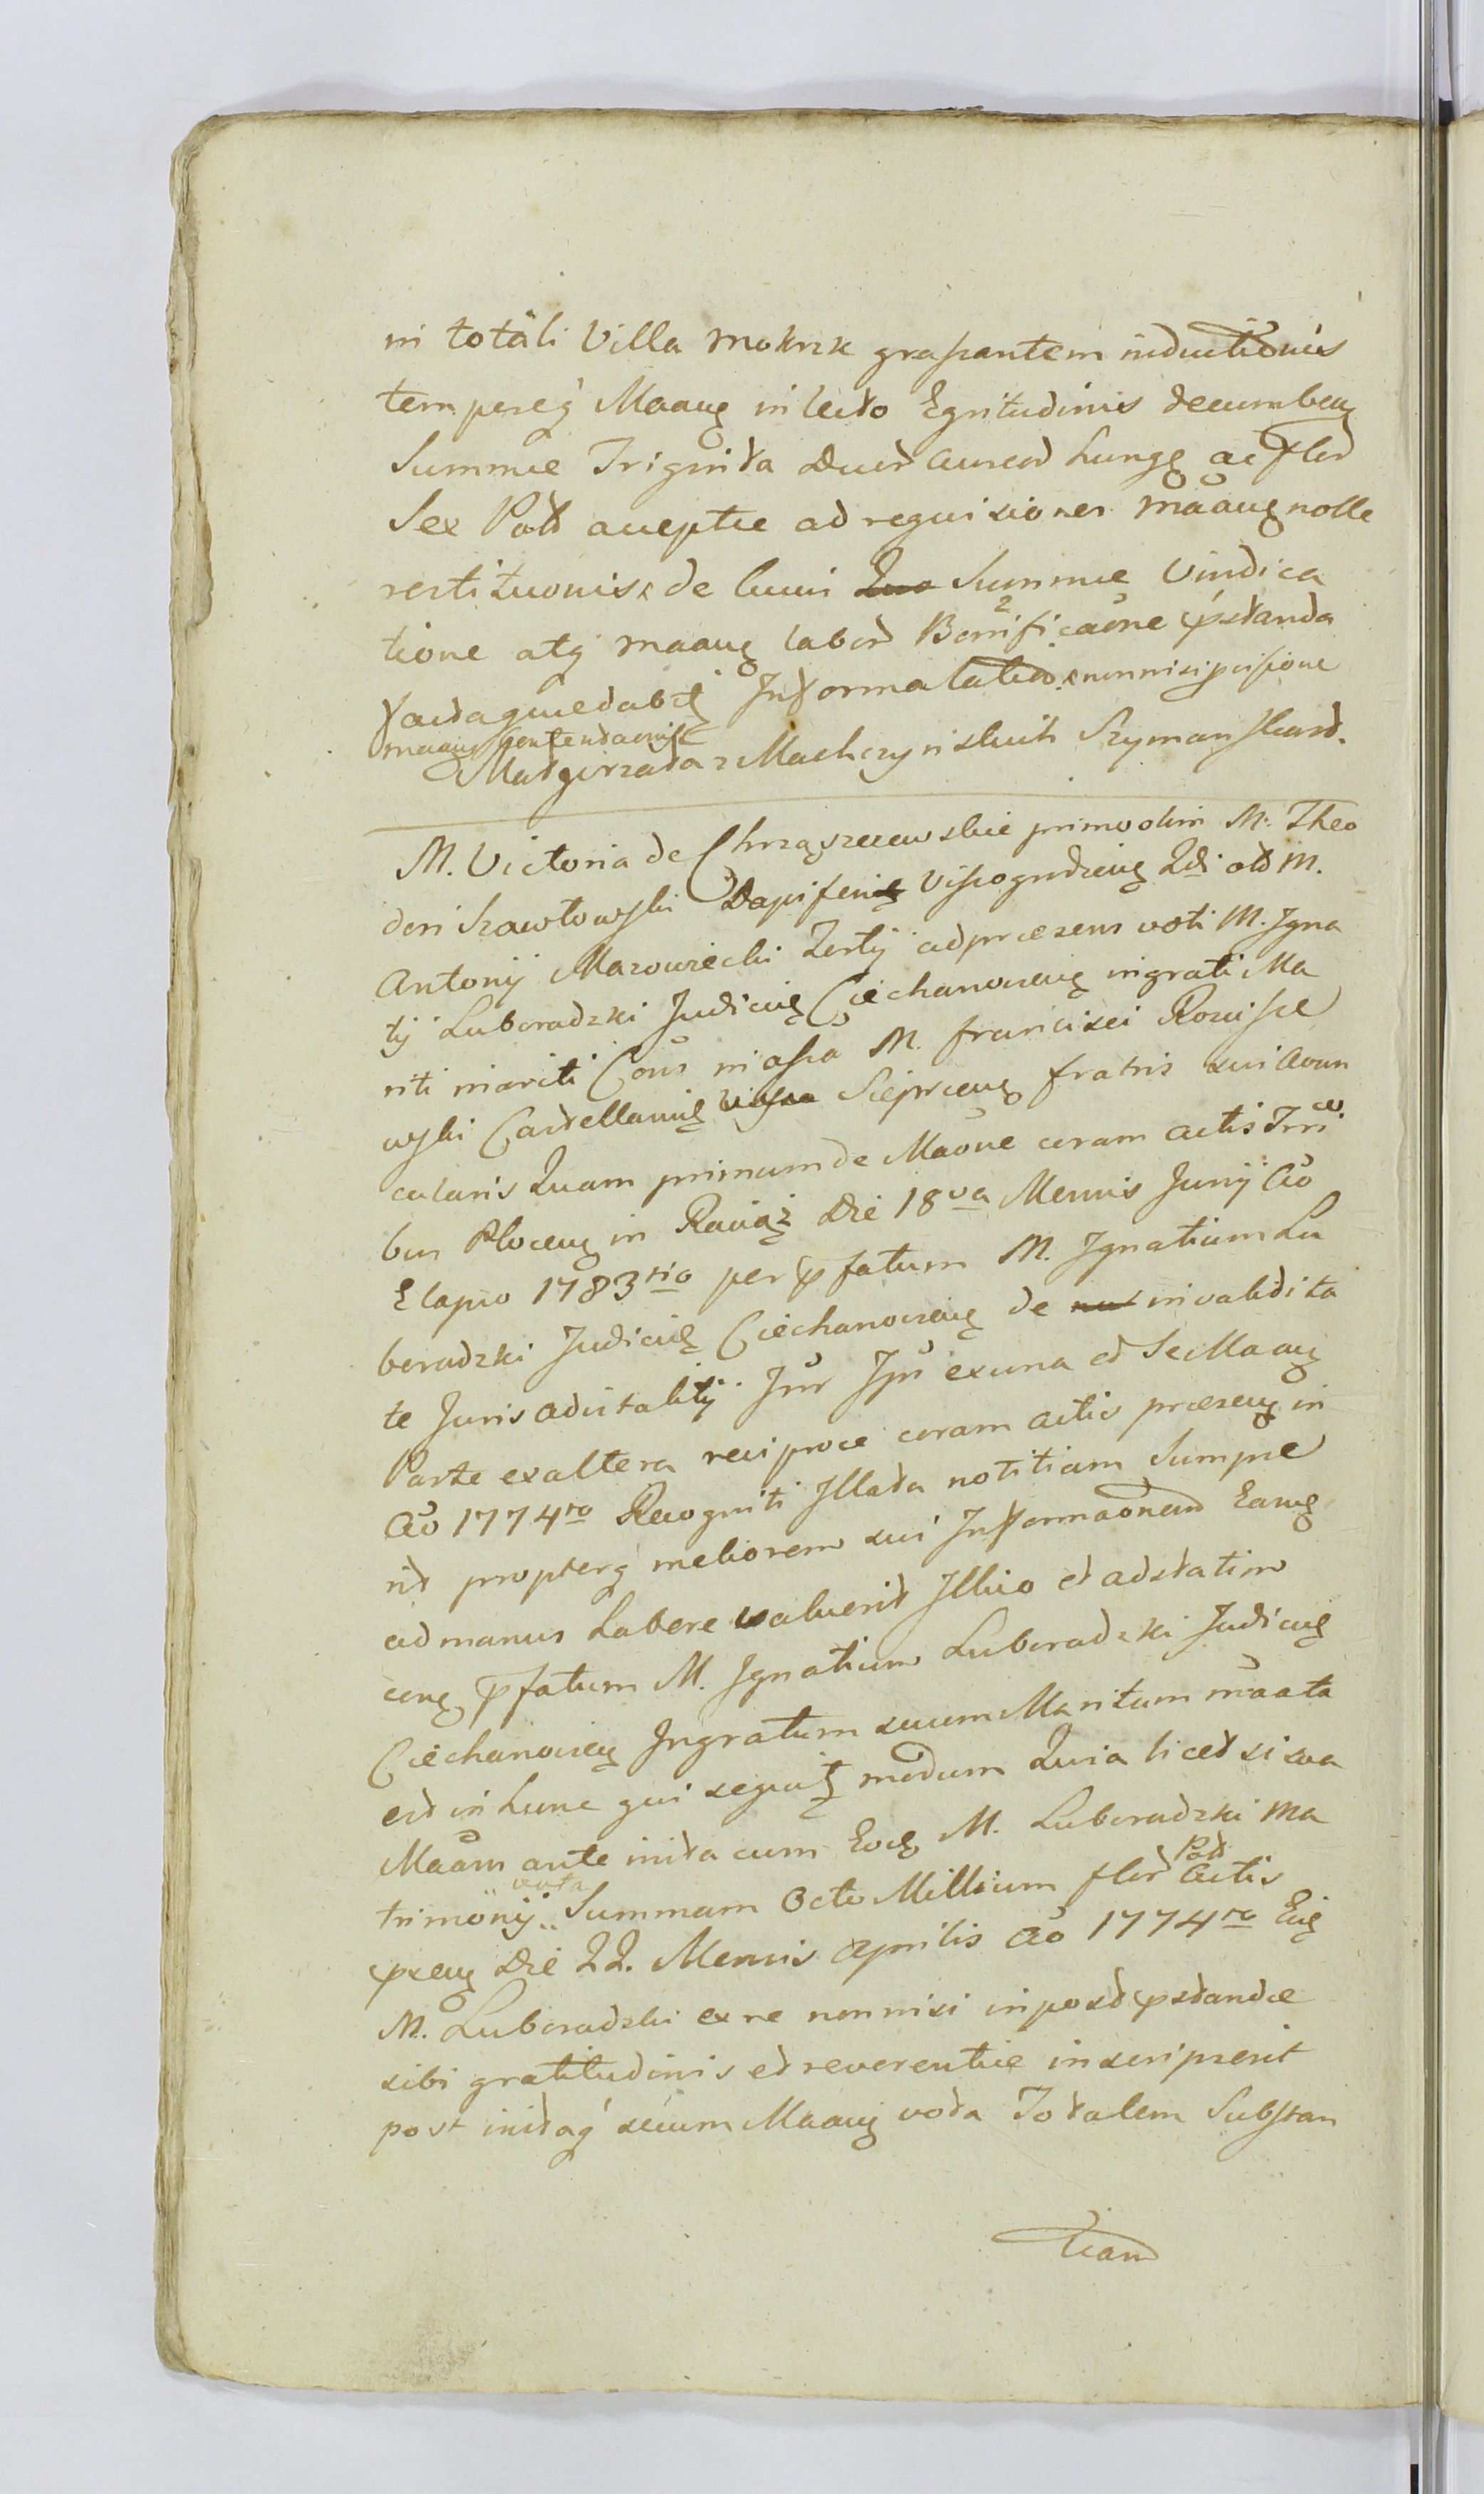 in totali Villa Mokrzk grassantem inductionis
tempereq Maanę in lecto Egritudinis decumben
Summæ Triginta Aureor Hung ac flor
Sex Pol acceptæ ad requisiones Maanę nolle
restituonis, de hujus Summæ Vindica
tione atq Maanę labor Bonificaone pstanda
factaq Informa nonnisi
Maanę
Małgorzata z Machczynskich Szymanska
M. Victoria de Chrząszczewskie primo olim M. Theo
dori Szawłowski Dapiferi Vissogrodien 2di olim M.
Antonij Mazowiecki Tertij ad præsens voti M. Igna
tij Luboradzki Judicis Ciechanovien ingrati Ma
riti mariti Cons in assa M. Francisci Rosciszе
wski Castellani Sieprcen fratris sui avun
cularis Quam primum de Maone coram actis Trri
bus Plocen in Raciąż Die 18va Mensis Junij Ao
Elapso 1783tio per pfatum M. Ignatium Lu
boradzki Judicem Ciechanovien de invalidita
te Juris advitalitij Inr Ipm ex una et Se Maan
Parte ex altera reciproce coram actis præsen in
Ao 1774to Recogniti Illata notitiam Sumpse
rit propterq meliorem sui Informaonem Eamq
ad manus habere valuerit Illico et adstatim
pfatum M. Ignatium Luboradzki Judicem
Ciechanovien Ingratum suum Maritum maata
est in hunc qui seqr modum Quia licet si sua
Maans ante inita cum Eod M. Luboradzki Ma
trimonij vota Summam Octo Millium flor Pol Actis
psen Die 22. Mensis Aprilis Ao 1774to Eid
M. Luboradzki ex re nonnisi in post pstandæ
sibi gratitudinis et reverentiæ inscripserit
post initaq secum Maan vota Totalem Substan
tiam